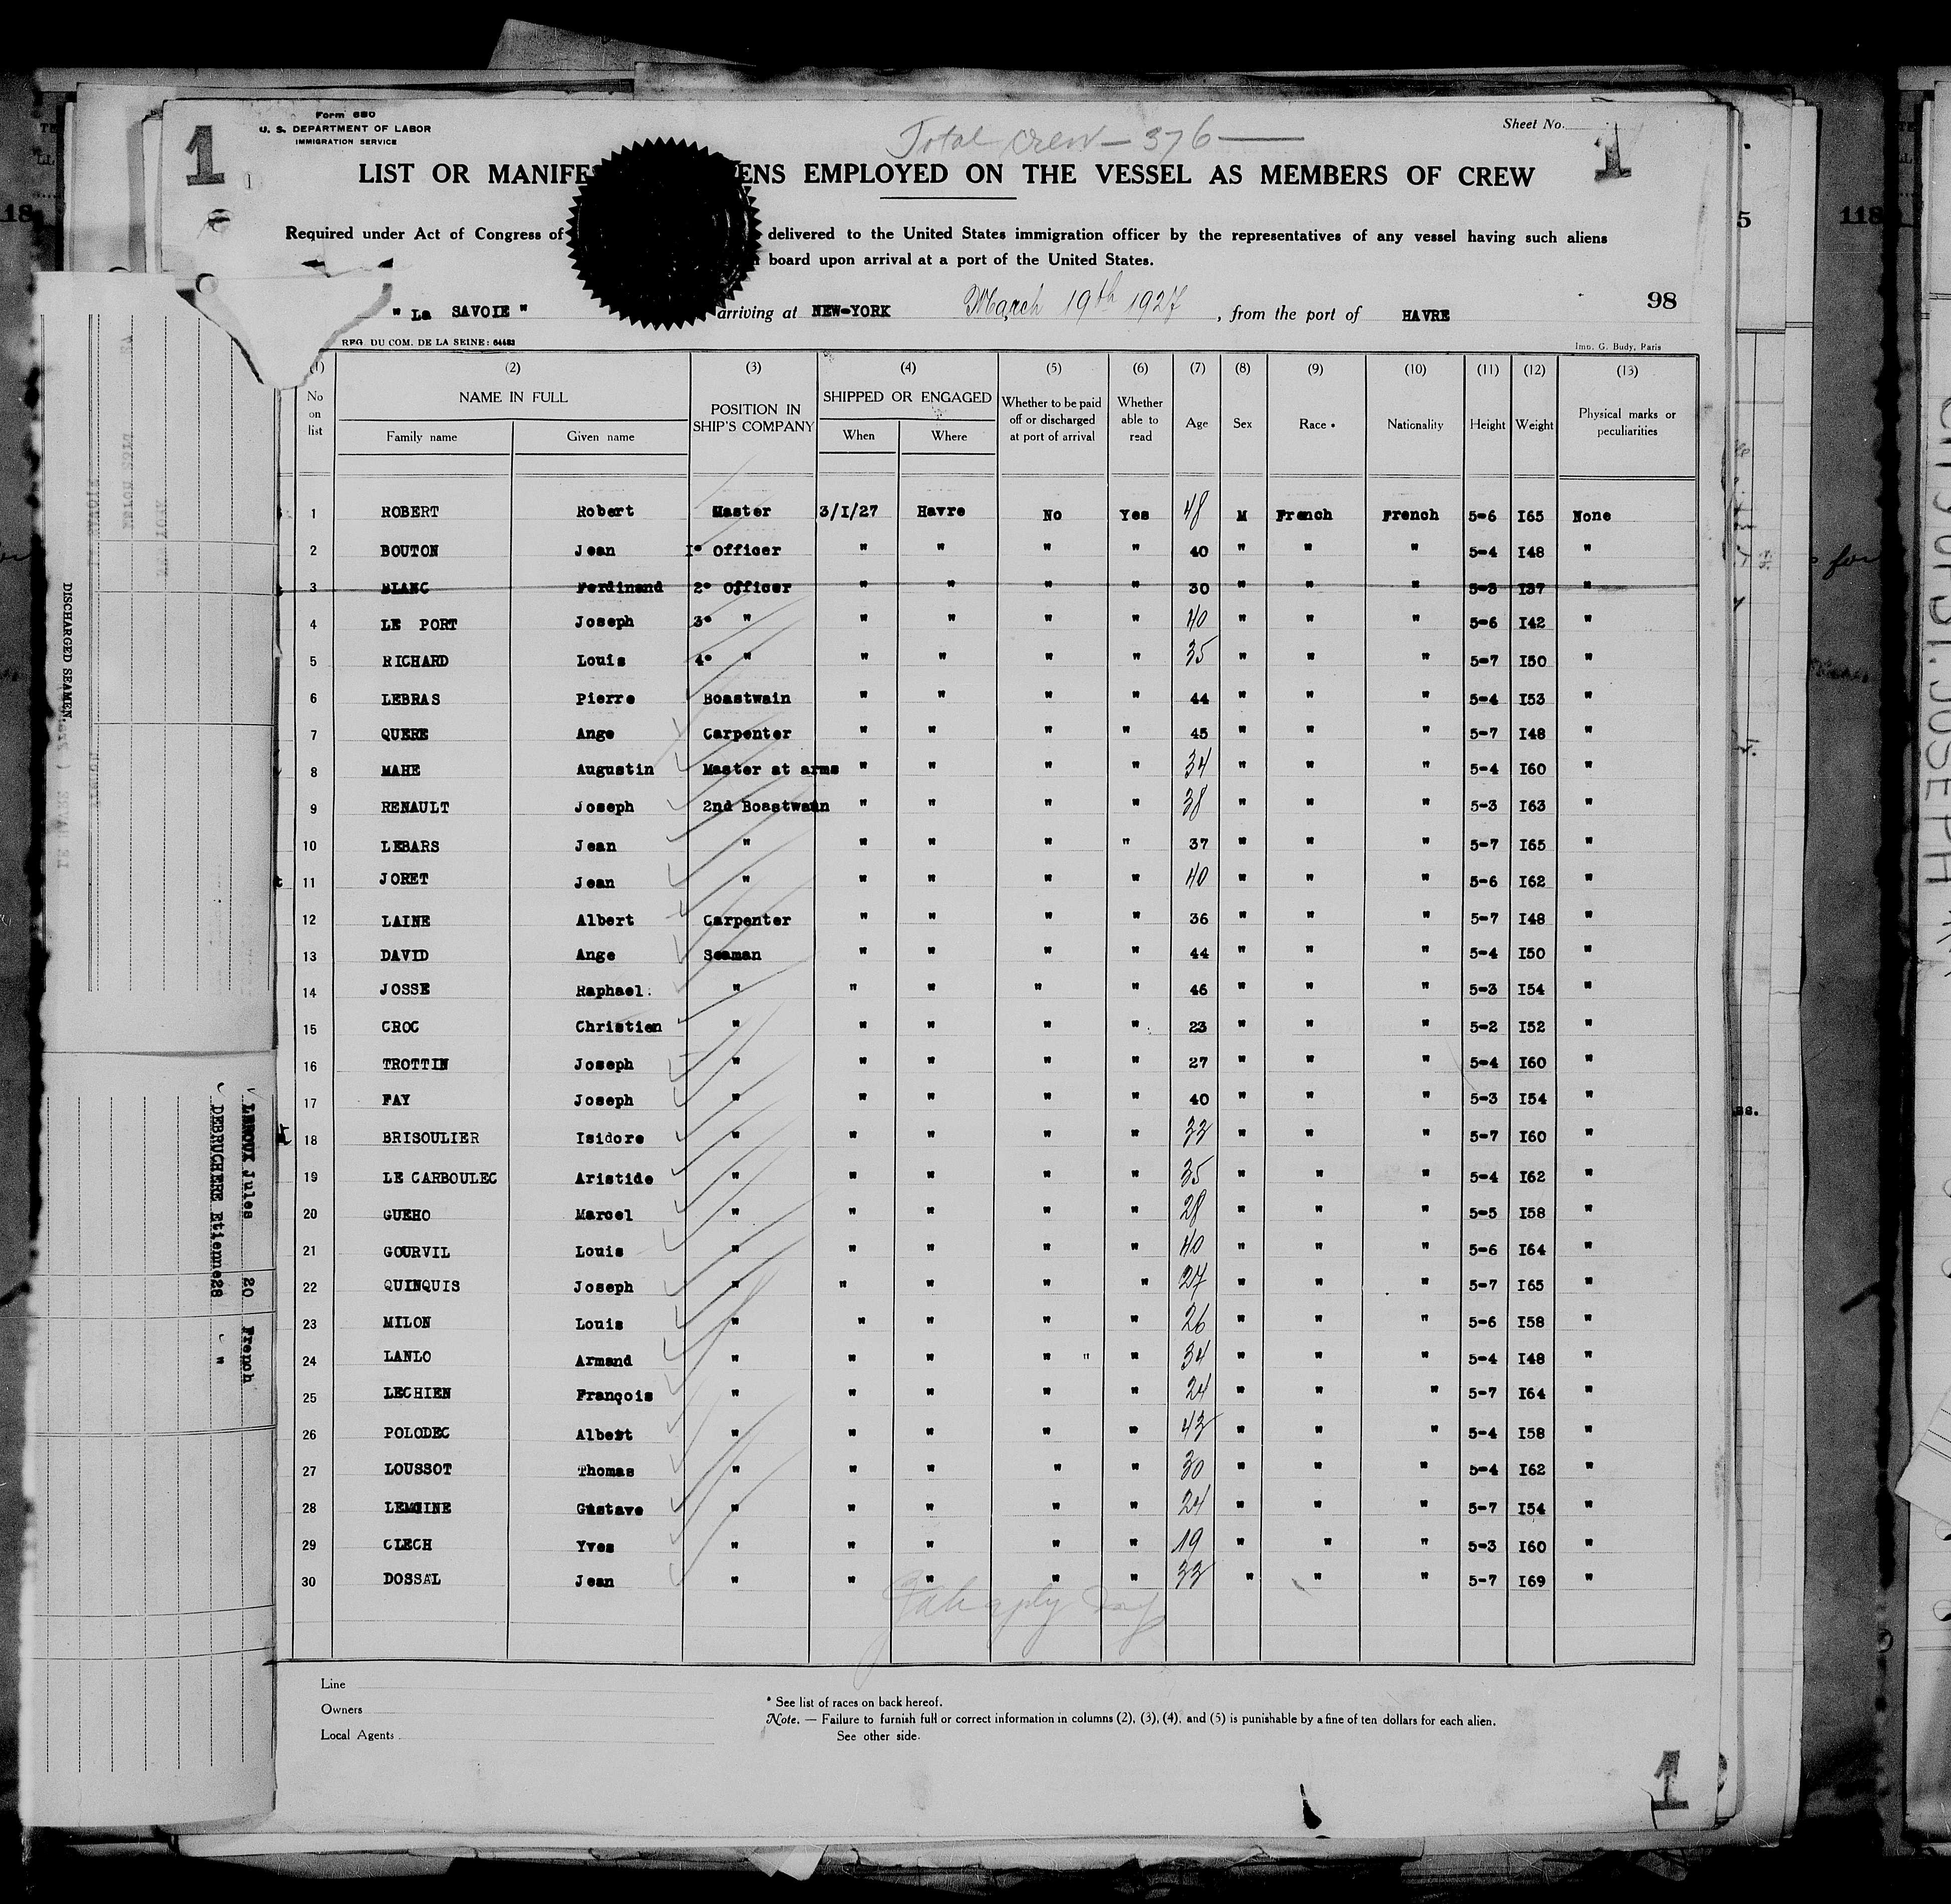 Form 680
U. S. DEPARTMENT OF LABOR
IMMIGRATION SERVICE
1
1
Total crew — 376 —
Sheet No.
1
LIST OR MANIFE ENS EMPLOYED ON THE VESSEL AS MEMBERS OF CREW
Required under Act of Congress of delivered to the United States immigration officer by the representatives of any vessel having such aliens
board upon arrival at a port of the United States.
" La SAVOIE " arriving at NEW-YORK March 19th 1927, from the port of HAVRE 98
REG. DU COM. DE LA SEINE: 64483
Imp. G. Budy, Paris
(1) (2) (3) (4) (5) (6) (7) (8) (9) (10) (11) (12) (13)
No on list NAME IN FULL POSITION IN SHIP'S COMPANY SHIPPED OR ENGAGED Whether to be paid off or discharged at port of arrival Whether able to read Age Sex Race * Nationality Height Weight Physical marks or peculiarities
Family name Given name When Where
1 ROBERT Robert Master 3/I/27 Havre No Yes 48 M French French 5-6 I65 None
2 BOUTON Jean I° Officer " " " " 40 " " " 5-4 I48 "
3 BLANC Ferdinand 2° Officer " " " " 30 " " " 5-3 I37 "
4 LE PORT Joseph 3° " " " " " 40 " " " 5-6 I42 "
5 RICHARD Louis 4° " " " " " 35 " " " 5-7 I50 "
6 LEBRAS Pierre Boastwain " " " " 44 " " " 5-4 I53 "
7 QUERE Ange Carpenter " " " " 45 " " " 5-7 I48 "
8 MAHE Augustin Master at arms " " " " 34 " " " 5-4 I60 "
9 RENAULT Joseph 2nd Boastwain " " " " 38 " " " 5-3 I63 "
10 LEBARS Jean " " " " " 37 " " " 5-7 I65 "
11 JORET Jean " " " " " 40 " " " 5-6 I62 "
12 LAINE Albert Carpenter " " " " 36 " " " 5-7 I48 "
13 DAVID Ange Seaman " " " " 44 " " " 5-4 I50 "
14 JOSSE Raphael " " " " " 46 " " " 5-3 I54 "
15 CROC Christien " " " " " 23 " " " 5-2 I52 "
16 TROTTIN Joseph " " " " " 27 " " " 5-4 I60 "
17 FAY Joseph " " " " " 40 " " " 5-3 I54 "
18 BRISOULIER Isidore " " " " " 33 " " " 5-7 I60 "
19 LE CARBOULEC Aristide " " " " " 35 " " " 5-4 I62 "
20 GUEHO Marcel " " " " " 28 " " " 5-5 I58 "
21 GOURVIL Louis " " " " " 40 " " " 5-6 I64 "
22 QUINQUIS Joseph " " " " " 27 " " " 5-7 I65 "
23 MILON Louis " " " " " 26 " " " 5-6 I58 "
24 LANLO Armand " " " " " " 34 " " " 5-4 I48 "
25 LECHIEN François " " " " " 24 " " " 5-7 I64 "
26 POLODEC Albert " " " " " 43 " " " 5-4 I58 "
27 LOUSSOT Thomas " " " " " 30 " " " 5-4 I62 "
28 LEMOINE Gustave " " " " " 24 " " " 5-7 I54 "
29 CLECH Yves " " " " " 19 " " " 5-3 I60 "
30 DOSSAL Jean " " " " " 33 " " " 5-7 I69 "
Line
Owners
Local Agents
* See list of races on back hereof.
Note. — Failure to furnish full or correct information in columns (2), (3), (4), and (5) is punishable by a fine of ten dollars for each alien.
See other side.
1
DISCHARGED SEAMEN.
LEROUX Jules 20 French
DEBRUCHERE Etienne 28 "
5
118
118
ST. JOSEPH
for